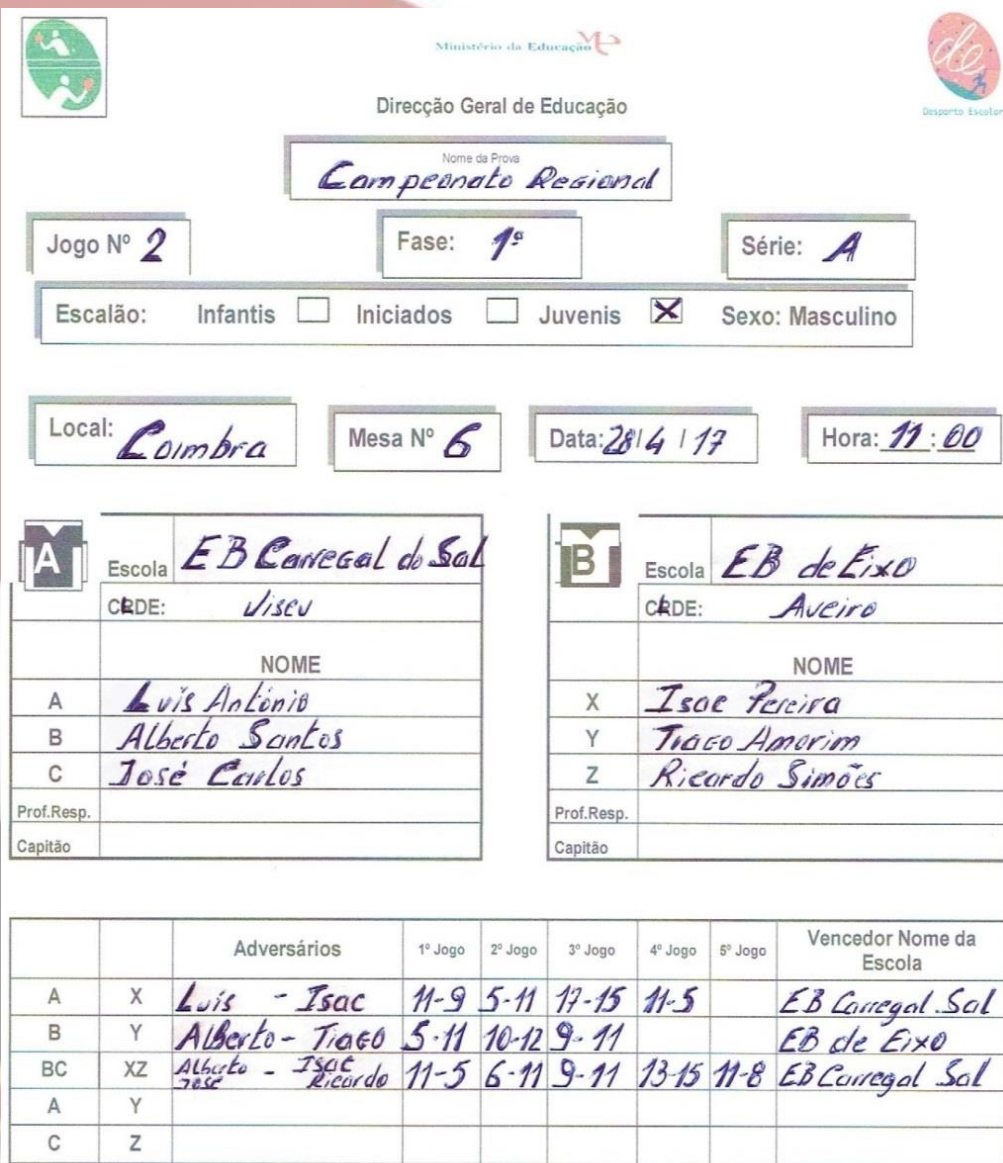 Ministério da Educação
Desporto Escolar
Direcção Geral de Educação
Nome da Prova
Campeonato Regional
Jogo Nº 2
Fase: 1ª
Série: A
Escalão: Infantis Iniciados Juvenis X Sexo: Masculino
Local: Coimbra
Mesa Nº 6
Data: 28/4/17
Hora: 11:00
A Escola EB Carregal do Sal
CLDE: Viseu
NOME
A Luís António
B Alberto Santos
C José Carlos
Prof.Resp.
Capitão
B Escola EB de Eixo
CLDE: Aveiro
NOME
X Isac Pereira
Y Tiago Amorim
Z Ricardo Simões
Prof.Resp.
Capitão
Adversários 1º Jogo 2º Jogo 3º Jogo 4º Jogo 5º Jogo Vencedor Nome da Escola
A X Luís - Isac 11-9 5-11 17-15 11-5 EB Carregal Sal
B Y Alberto - Tiago 5-11 10-12 9-11 EB de Eixo
BC XZ Alberto José - Isac Ricardo 11-5 6-11 9-11 13-15 11-8 EB Carregal Sal
A Y
C Z